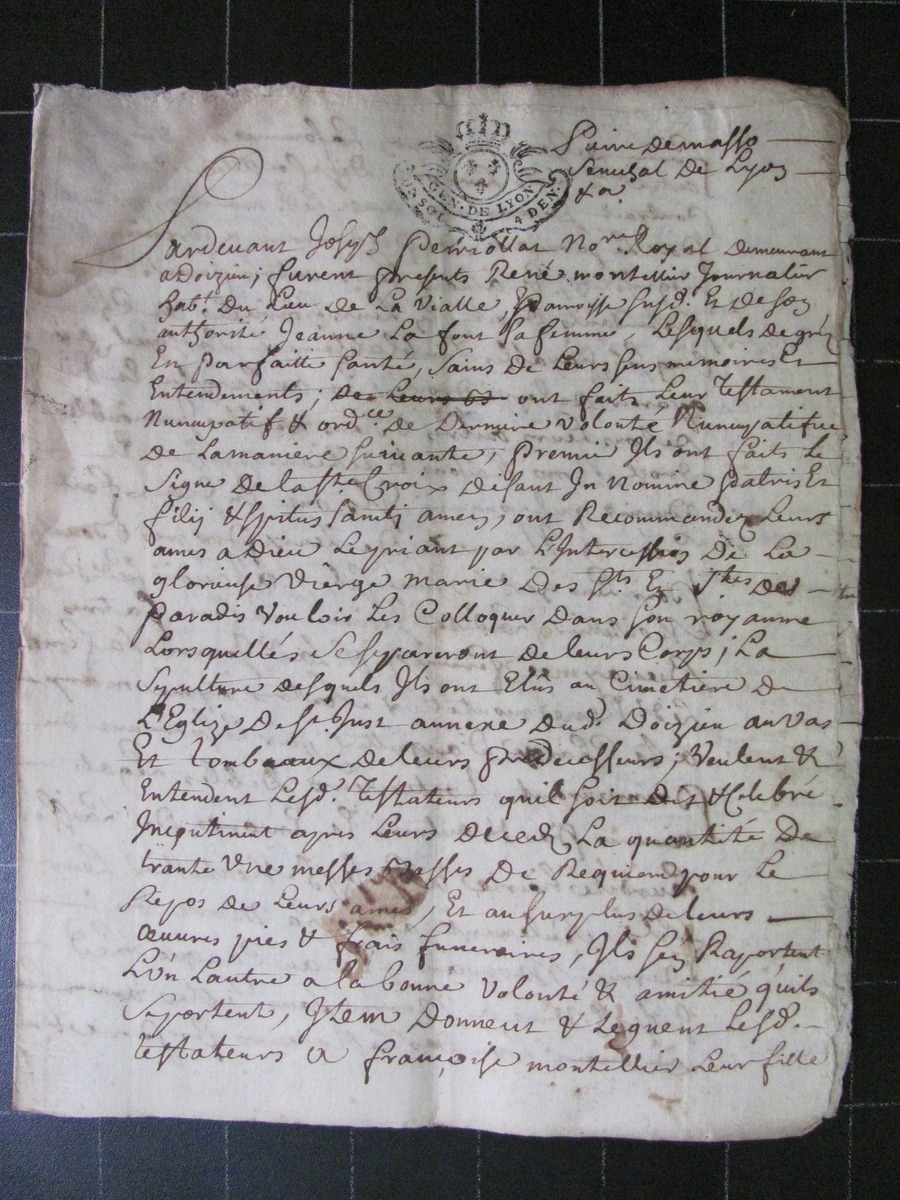 GEN. DE LYON
SOL. 4 DEN.
Pierre de masso
Senechal De Lyon
& a
Pardevant Joseph Perriollat Nore Royal demeurant
a Doizieu; furent presents René montellier Journalier
habt. Du Lieu de La Vialle, Parroisse susd. Et de son
authorité Jeanne La font sa femme, Lesquels de gré
En parfaitte santé, sains De Leurs sens memoires Et
Entendements; de Leurs ont faits Leur Testament
Nuncupatif & ordce. de Derniere volonté Nuncupatifve
de La maniere suivante, premier Ils ont faits Le
signe de la Ste Croix disant In Nomine patris Et
filij & spitus sancti amen, ont Recommandez Leurs
ames a Dieu Le priant par L'Intercession De La
glorieuse Vierge marie Des Sts. Et Stes des
paradis vouloir Les Colloquer Dans son royaume
Lorsquelles se separeront de leurs Corps; La
sepulture desquels Ils ont Elus au Cimetiere de
L'Eglize De St. Just annexe dud. Doizieu au vas
Et Tombeaux de leurs predecesseurs; Veulent &
Entendent Lesd. Testateurs quil soit Dit & Celebré
Incontinent apres Leurs deced La quantité De
trante Une messes basses De Requiem pour Le
Repos de Leurs ames, Et au surplus de leurs
œuvres pies & frais funeraires, Ils sen Raportent
L'Un Lautre a la bonne volonté & amitié quils
se portent, Item Donnent & Leguent Lesd.
Testateurs a françoise montellier Leur fille